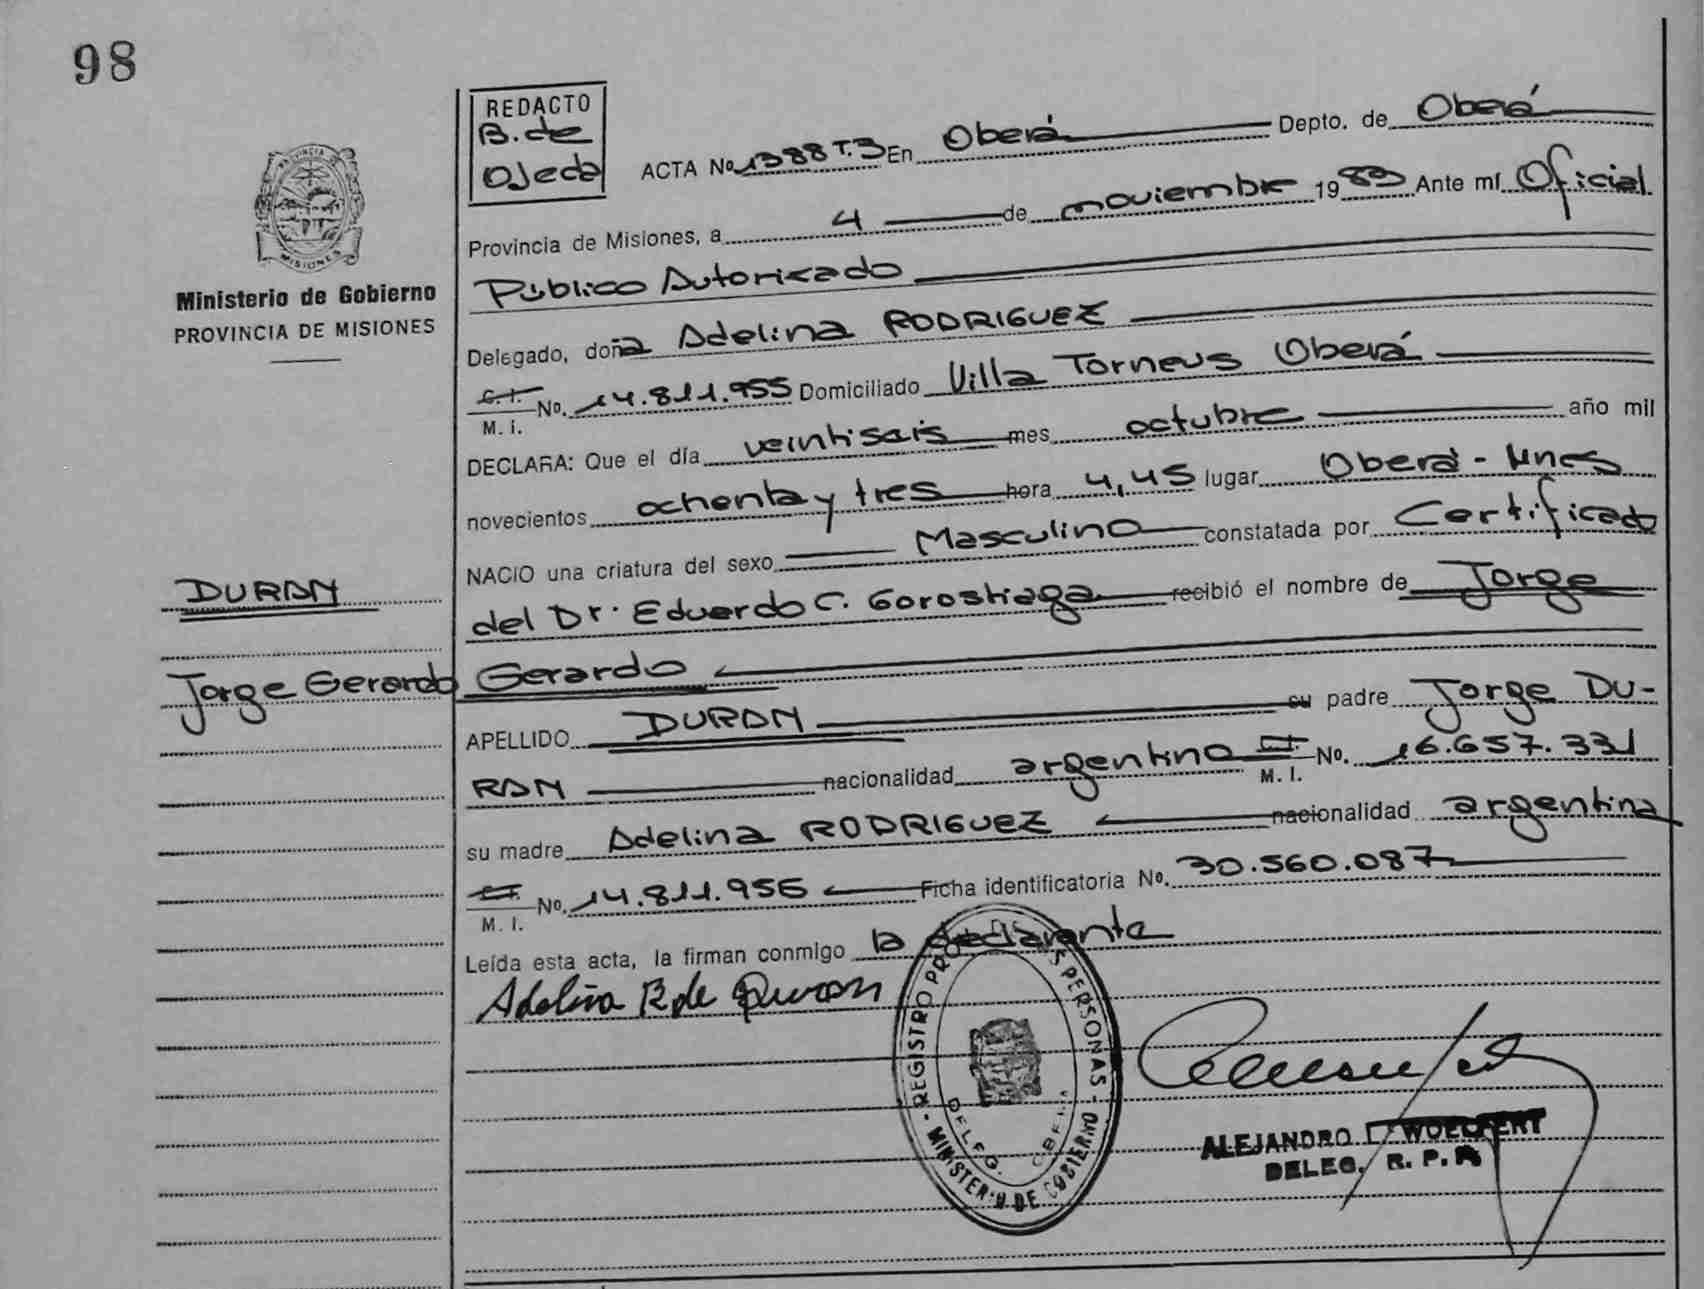 98
REDACTO
B. de
Ojeda
ACTA No 1388 T.3 En Oberá Depto. de Oberá
Provincia de Misiones, a 4 de noviembre 1983 Ante mí Oficial
Público Autorizado
Delegado, doña Adelina RODRIGUEZ
C.I. M. I. No. 14.811.955 Domiciliado Villa Torneus Oberá
DECLARA: Que el día veintiseis mes octubre año mil
novecientos ochenta y tres hora 4,45 lugar Oberá - Mnes
NACIO una criatura del sexo Masculino constatada por Certificado
del Dr. Eduardo C. Gorostiaga recibió el nombre de Jorge
Gerardo
APELLIDO DURAN su padre Jorge DU-
RAN nacionalidad argentino C.I. M. I. No. 16.657.331
su madre Adelina RODRIGUEZ nacionalidad argentina
C.I. M. I. No. 14.811.956 Ficha identificatoria No. 30.560.087
Leída esta acta, la firman conmigo la declarante
Adelina R de Duran
PROVINCIA DE
MISIONES
Ministerio de Gobierno
PROVINCIA DE MISIONES
DURAN
Jorge Gerardo
REGISTRO PERSONAS
MINISTERIO DE GOBIERNO
DELEG. OBERA
ALEJANDRO WOELFERT
DELEG. R. P. P.